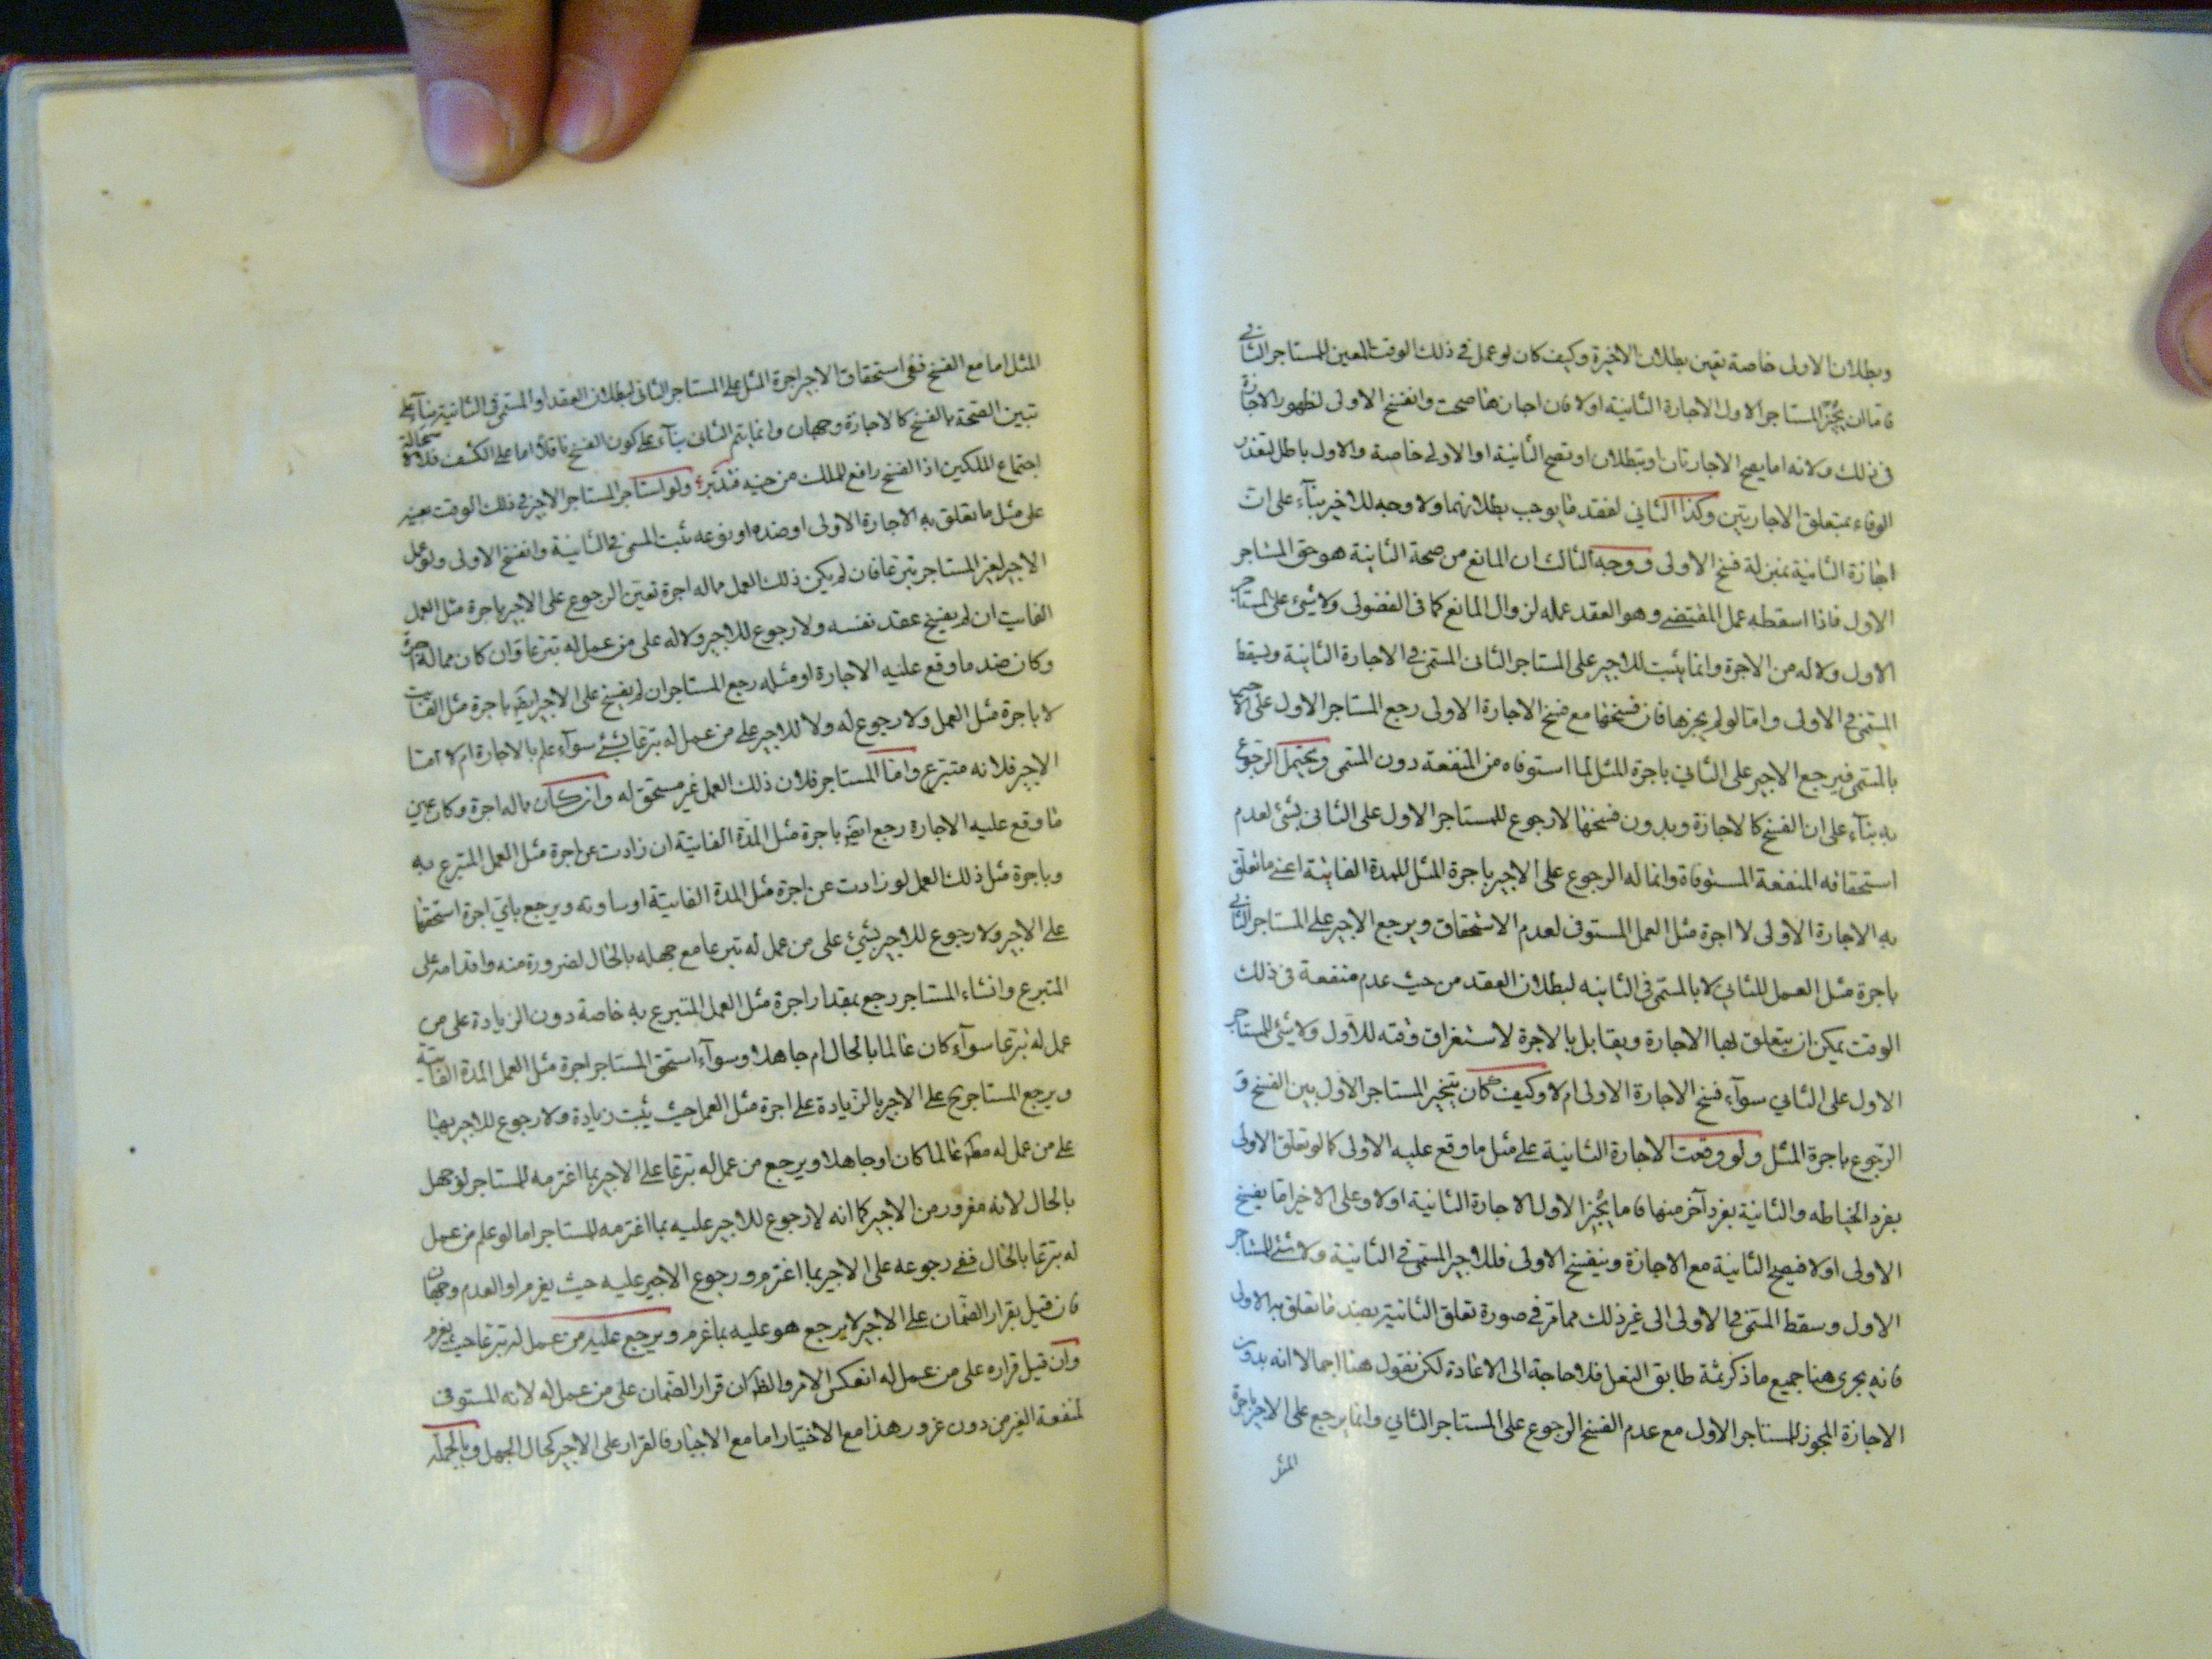 وبطلان الاولى خاصة يقين بطلان الاخيرة وكيف كان لو عمل في ذلك الوقت المعين للمستاجر الثاني
فاما ان يجيز المستاجر الاول الاجارة الثانية اولا فان اجازها صحت وانفسخ الاولى لظهور الاجازة
في ذلك ولانه اما يصح الاجارتان او تبطلان او تصح الثانية او الاولى خاصة والاول باطل لتعذر
الوفاء بمتعلق الاجارتين وكذا الثاني لفقد ما يوجب بطلانهما ولا وجه للاخير بناء على ان
اجازة الثانية بمنزلة فسخ الاولى ووجه الثالث ان المانع من صحة الثانية هو حق المستاجر
الاول فاذا اسقطه عمل المقتضى وهو العقد عمله لزوال المانع كما في الفضولى ولا شيء على المستاجر
الاول ولا له من الاجرة وانما يثبت للاجير على المستاجر الثانى المسمى في الاجارة الثانية ويسقط
المسمى في الاولى واما لو لم يجزها فان فسخها مع فسخ الاجارة الاولى رجع المستاجر الاول على الاجير
بالمسمى فيرجع الاجير على الثاني باجرة المثل لما استوفاه من المنفعة دون المسمى ويحتمل الرجوع
به بناء على ان الفسخ كالاجازة وبدون فسخها لا رجوع للمستاجر الاول على الثانى بشئ لعدم
استحقاقه المنفعة المستوفاة وانما له الرجوع على الاجير باجرة المثل للمدة الفايتة اعنى ما تعلق
به الاجارة الاولى لا اجرة مثل العمل المستوفى لعدم الاستحقاق ويرجع الاجير على المستاجر الثاني
باجرة مثل العمل للثاني لا بالمسمى في الثانيه لبطلان العقد من حيث عدم منفعة في ذلك
الوقت يمكن ان يتعلق لها الاجارة ويقابل بالاجرة لاستغراق وقته للاول ولا شئ للمستاجر
الاول على الثاني سوآء فسخ الاجارة الاولى ام لا وكيف كان يتخير المستاجر الاول بين الفسخ و
الرجوع باجرة المثل ولو وقعت الاجارة الثانية على مثل ما وقع عليه الاولى كما لو تعلق الاولى
بفرد الخياطه والثانية بفرد آخر منها فاما يجيز الاول الاجارة الثانية اولا وعلى الاخير اما يفسخ
الاولى اولا فيصح الثانية مع الاجازة وينفسخ الاولى فللاجير المسمى في الثانية ولا شئ للمستاجر
الاول وسقط المسمى في الاولى الى غير ذلك مما مر في صورة تعلق الثانية بضد ما تعلق به الاولى
فانه يجرى هنا جميع ما ذكر ثمة طابق النعل فلا حاجة الى الاعادة لكن نقول هنا اجمالا انه بدون
الاجازة المجوز للمستاجر الاول مع عدم الفسخ الرجوع على المستاجر الثاني وانما يرجع على الاجير باجرة
المثل
المثل اما مع الفسخ ففى استحقاق الاجير اجرة المثل على المستاجر الثانى لبطلان العقد او المسمى في الثانية بناء على
تبين الصحة بالفسخ كالاجازة وجهان وانما يتم الثانى بناء على كون الفسخ ناقلا اما على الكشف فلا
اجتماع الملكين اذ الفسخ رافع للملك من حينه فتدبر ولو استاجر المستاجر الاجير في ذلك الوقت بعينه
على مثل ما تعلق به الاجارة الاولى او ضده او نوعه يثبت المسمى في الثانية وانفسخ الاولى ولو عمل
الاجير لغير المستاجر تبرعا فان لم يكن ذلك العمل مما له اجرة تعين الرجوع على الاجير باجرة مثل العمل
الفايت ان لم يفسخ عقد نفسه ولا رجوع للاجير ولا له على من عمل له تبرعا وان كان مما له اجرة
وكان ضد ما وقع عليه الاجارة او مثله رجع المستاجر ان لم يفسخ على الاجير ايضا باجرة مثل الفايت
لا باجرة مثل العمل ولا رجوع له ولا للاجير على من عمل له تبرعا بشئ سوآء علم بالاجارة ام لا اما
الاجير فلانه متبرع واما المستاجر فلان ذلك العمل غير مستحق له وان كان ماله اجرة وكان عين
ما وقع عليه الاجارة رجع ايضا باجرة مثل المدة الفايتة ان زادت عن اجرة مثل العمل المتبرع به
وباجرة مثل ذلك العمل لو زادت عن اجرة مثل المدة الفايتة او ساوته ويرجع باي اجرة استحقها
على الاجير ولا رجوع للاجير بشئ على من عمل له تبرعا مع جهله بالحال لضرورة منه واقدامه على
المتبرع وانشاء المستاجر رجع بمقدار اجرة مثل العمل المتبرع به خاصة دون الزيادة على من
عمل له تبرعا سوآء كان عالما بالحال ام جاهلا وسوآء استحق المستاجر اجرة مثل العمل المدة الفايتة
ويرجع المستاجر ح على الاجير بالزيادة على اجرة مثل العمل حيث يثبت زيادة ولا رجوع للاجير بها
على من عمل له مطلقا عالما كان او جاهلا ويرجع من عمل له تبرعا على الاجير بما اغترمه للمستاجر لو جهل
بالحال لانه مغرور من الاجير كما انه لا رجوع للاجير عليه بما اغترمه للمستاجر اما لو علم من عمل
له تبرعا بالحال ففي رجوعه على الاجير بما اغترم ورجوع الاجير عليه حيث يغرم او العدم وجهان
فان قيل بقرار الضمان على الاجير لا يرجع هو عليه بما غرم ويرجع عليه من عمل له تبرعا حيث يغرم
وان قيل قراره على من عمل له انعكس الامر والظ ان قرار الضمان على من عمل له لانه المستوفى
لمنفعة الغير من دون غرور هذا مع الاختيار اما مع الاجبار فالقرار على الاجير كحال الجهل وبالجملة